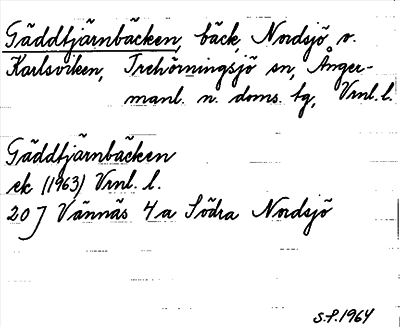 Gäddtjärnbäcken, bäck, Nordsjö v.
Karlsviken, Trehörningsjö sn, Ånger-
manl. n. doms. tg, Vrnl. l.
Gäddtjärnbäcken
ek (1963) Vrnl. l.
20 J Vännäs 4 a Södra Nordsjö
S.P. 1964